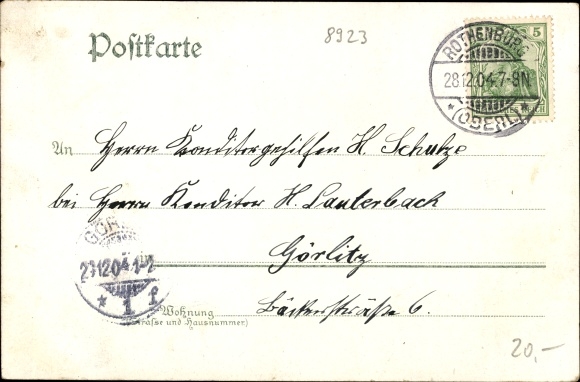 8923
Postkarte
5
ROTHENBURG
28.12.04.7-8N
* (OBERL.) *
An Herrn Konditorgehilfen H. Schulze
bei Herrn Konditor H. Lauterbach
Görlitz
29.12.04.1-2
* 1 f
Bäckerstraße 6.
Wohnung
(Straße und Hausnummer)
20,-